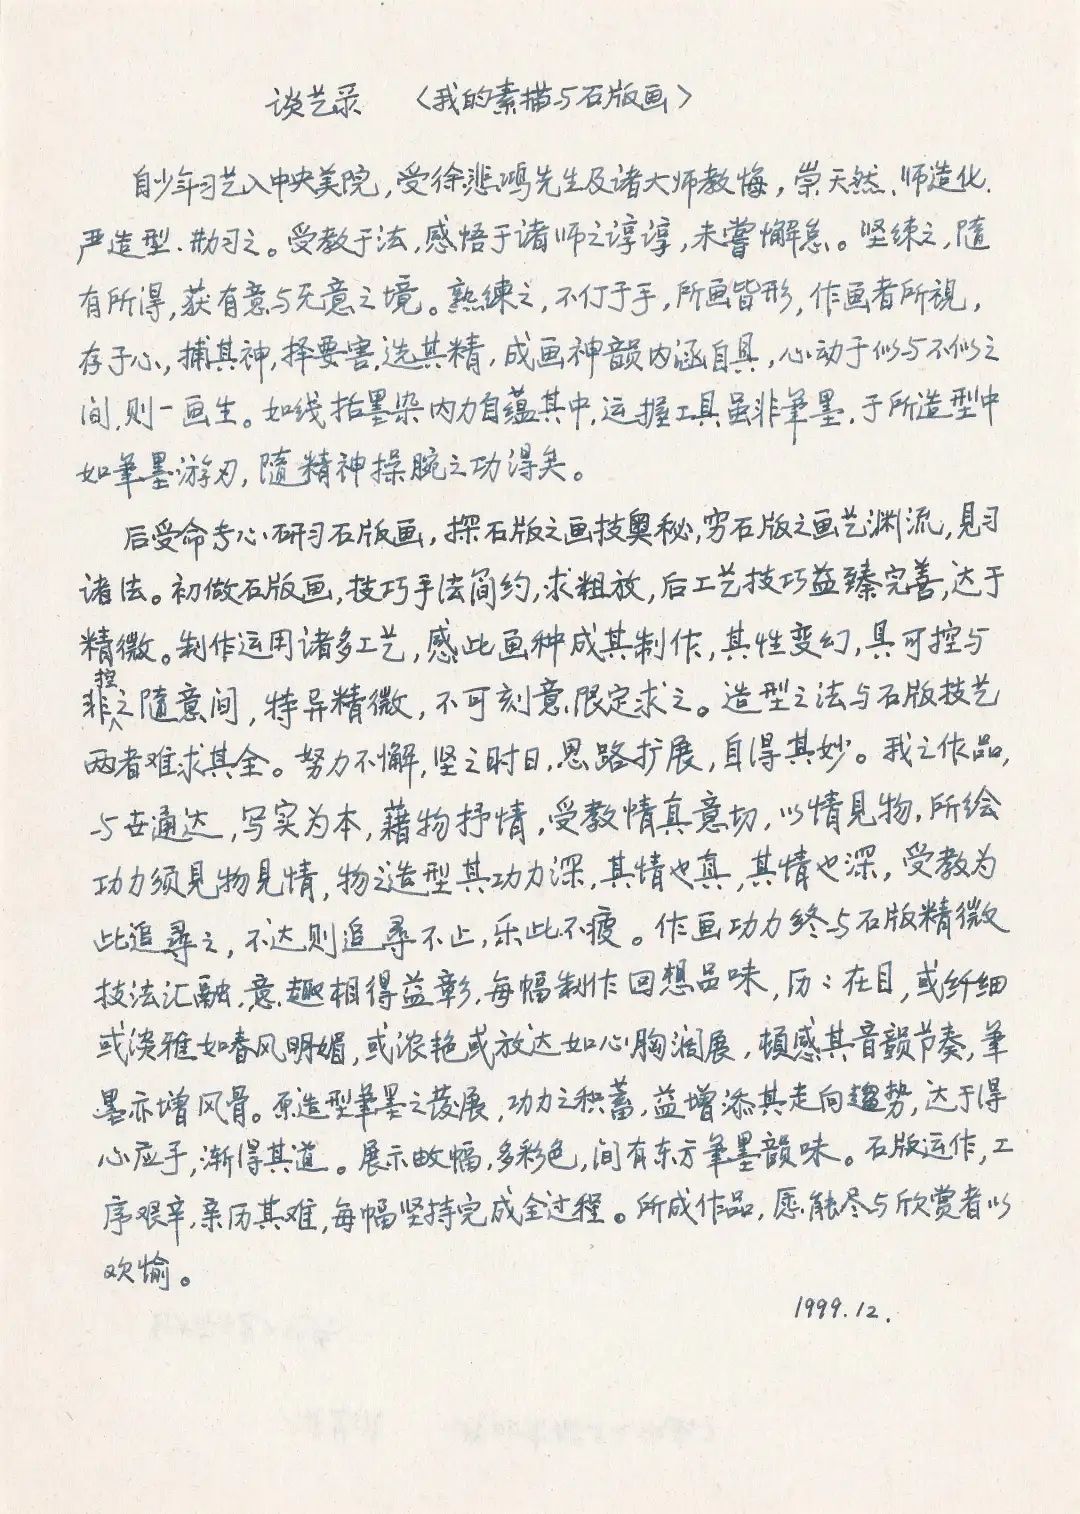 谈艺录 〈我的素描与石版画〉
自少年习艺入中央美院，受徐悲鸿先生及诸大师教悔，崇天然、师造化、
严造型、勤习之。受教于法，感悟于诸师之谆谆，未嘗懈怠。坚练之，隨
有所得，获有意与无意之境。熟练之，不仃于手，所画皆形，作画者所視，
存于心，捕其神，择要害，选其精，成画神韻内涵自具，心动于似与不似之
间，则一画生。如线括墨染内力自蕴其中，运握工具虽非筆墨，于所造型中
如筆墨游刃，隨精神操腕之功得矣。
后受命专心研习石版画，探石版之画技奥秘，穷石版之画艺渊流，見习
诸法。初做石版画，技巧手法简约，求粗放，后工艺技巧益臻完善，达于
精微。制作运用诸多工艺，感此画种成其制作，其性变幻，具可控与
非控之隨意间，特异精微，不可刻意限定求之。造型之法与石版技艺
两者难求其全。努力不懈，坚之时日，思路扩展，自得其妙。我之作品，
与世通达，写实为本，藉物抒情，受教情真意切，以情見物，所绘
功力须見物見情，物之造型其功力深，其情也真，其情也深，受教为
此追尋之，不达则追尋不止，乐此不疲。作画功力终与石版精微
技法汇融，意趣相得益彰，每幅制作回想品味，历：在目，或纤细
或淡雅如春风明媚，或浓艳或放达如心胸润展，頓感其音韻节奏，筆
墨亦增风骨。原造型筆墨之發展，功力之积蓄，益增添其走向趨势，达于得
心应手，渐得其道。展示此幅，多彩色，间有东方筆墨韻味。石版运作，工
序艰辛，亲历其难，每幅坚持完成全过程。所成作品，愿能尽与欣赏者以
欢愉。
1999.12.